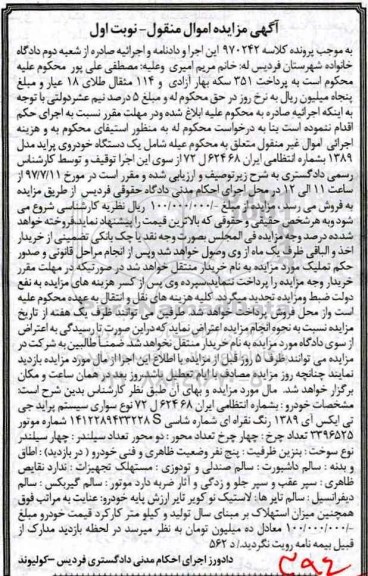 آگهی مزایده اموال منقول - نوبت اول
به موجب پرونده کلاسه ۹۷۰۲۴۲ این اجرا و دادنامه و اجرائیه صادره از شعبه دوم دادگاه
خانواده شهرستان فردیس له: خانم مریم امیری وعلیه: مصطفی علی پور محکوم علیه
محکوم است به پرداخت ۳۵۱ سکه بهار آزادی و ۱۱۴ مثقال طلای ۱۸ عیار و مبلغ
پنجاه میلیون ریال به نرخ روز در حق محکوم له و مبلغ ۵ درصد نیم عشردولتی با توجه
به اینکه اجرائیه صادره به محکوم علیه ابلاغ شده ودر مهلت مقرر نسبت به اجرای حکم
اقدام ننموده است بنا به درخواست محکوم له به منظور استیفای محکوم به و هزینه
اجرائی اموال غیر منقول متعلق به محکوم علیه شامل یک دستگاه خودروی پراید مدل
۱۳۸۹ بشماره انتظامی ایران ۶۸ ۶۲۴ل۷۲ از سوی این اجرا توقیف و توسط کارشناس
رسمی دادگستری به شرح زیرتوصیف و ارزیابی شده و مقرر است در مورخ ۹۷/۷/۱۱ از
ساعت ۱۱ الی ۱۲ در محل اجرای احکام مدنی دادگاه حقوقی فردیس از طریق مزایده
به فروش می رسد. مزایده از مبلغ ۱۰۰/۰۰۰/۰۰۰/- ریال نظریه کارشناسی شروع می
شود وبه هرشخص حقیقی و حقوقی که بالاترین قیمت را پیشنهاد نماید فروخته خواهد
شد ده درصد وجه مزایده فی المجلس بصورت وجه نقد یا چک بانکی تضمینی از خریدار
اخذ و الباقی ظرف یک ماه از وی وصول خواهد شد وپس از انجام مراحل قانونی و صدور
حکم تملیک مورد مزایده به نام خریدار منتقل خواهد شد در صورتیکه در مهلت مقرر
خریدار وجه مزایده را پرداخت ننماید سپرده وی پس از کسر هزینه های مزایده به نفع
دولت ضبط ومزایده تجدید میگردد. کلیه هزینه های نقل و انتقال به عهده محکوم علیه
است واز محل فروش پرداخت خواهد شد. طرفین می توانند ظرف یک هفته از تاریخ
مزایده نسبت به نحوه انجام مزایده اعتراض نماید که دراین صورت تا رسیدگی به اعتراض
از سوی دادگاه مورد مزایده به نام خریدار منتقل نخواهد شد. ضمنا طالبین به شرکت در
مزایده می توانند ظرف ۵ روز قبل از مزایده با اطلاع این اجرا از مال مورد مزایده بازدید
نمایند چنانچه روز مزایده مصادف با ایام تعطیل باشد روز بعد در همان ساعت و مکان
برگزار خواهد شد. مال مورد مزایده و بهای آن طبق نظر کارشناس بدین شرح است:
مشخصات خودرو : بشماره انتظامی ایران ۶۸ ۶۲۴ ل ۷۲ نوع سواری سیستم پراید جی
تی ایکس آی ۱۳۸۹ رنگ نقره ای شماره شاسی S ۱۴۱۲۲۸۹۴۳۳۲۲۸ شماره موتور
۳۳۹۶۵۲۵ تعداد چرخ : چهار چرخ تعداد محور : دو محور تعداد سیلندر : چهار سیلندر
نوع سوخت : بنزین ظرفیت : پنج نفر وضعیت ظاهری و فنی خودرو ( در بازدید) : اطاق
و بدنه : سالم داشبورت : سالم صندلی و تودوزی : مستهلک تجهیزات : ندارد نقایص
ظاهری : سپر عقب و سپر جلو و زدگی و آثار ضربه دارد موتور : سالم گیربکس : سالم
دیفرانسیل : سالم تایر ها : لاستیک نو کویر تایر ارزش پایه خودرو: عنایت به مراتب فوق
همچنین میزان استهلاک بر مبنای سال تولید و کیلو متر کارکرد قیمت خودرو مبلغ
۱۰۰/۰۰۰/۰۰۰/- معادل ده میلیون تومان به نظر میرسد در لحظه بازدید مدارک از
قبیل بیمه نامه رویت نگردید./ د ۵۶۲
دادورز اجرای احکام مدنی دادگستری فردیس – کولیوند